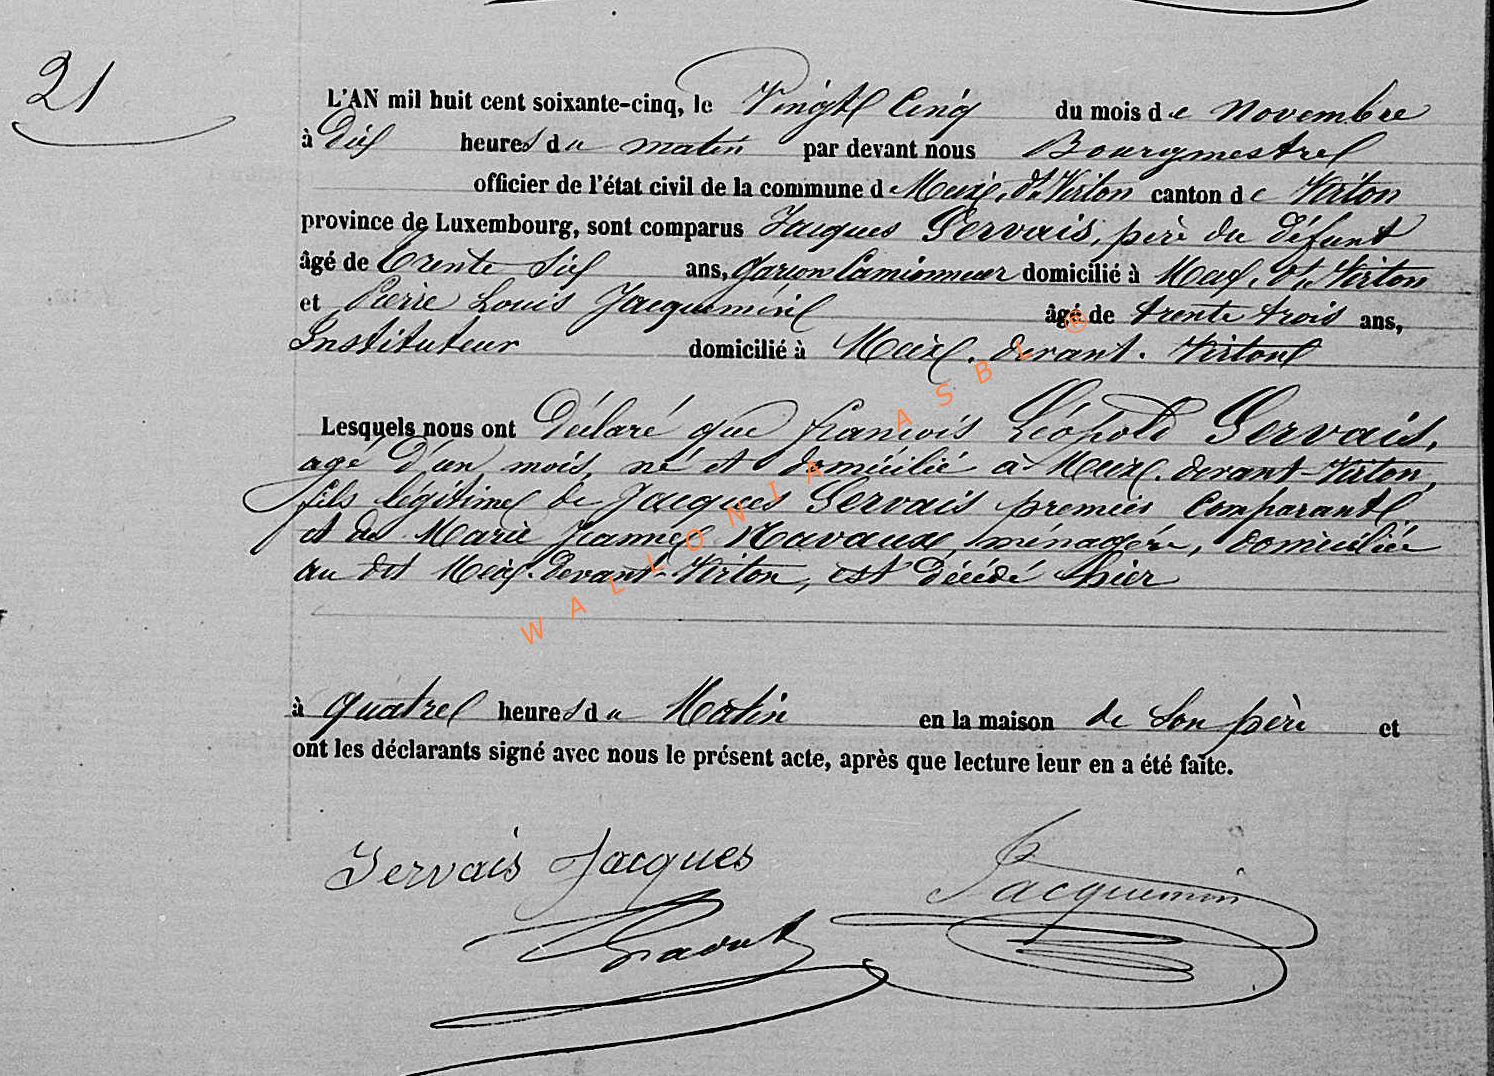 21
L'AN mil huit cent soixante-cinq, le Vingt Cinq du mois de novembre
à Dix heures du matin par devant nous Bourgmestre
officier de l'état civil de la commune d Meix, dt Virton canton de Virton
province de Luxembourg, sont comparus Jacques Gervais, père du défunt
âgé de trente Six ans, garçon Camionneur domicilié à Meix, dt, Virton
et Pierre Louis Jacquemin âgé de trente trois ans,
Instituteur domicilié à Meix. devant. Virton
Lesquels nous ont Déclaré que françois Léopold Gervais,
agé d'un mois, né et domicilié à Meix. devant-Virton,
fils légitime de Jacques Gervais premier Comparant
et de Marie Jeanne Navaux, ménagère, domiciliée
au dit Meix. devant-Virton, est décédé hier
à quatre heures du Matin en la maison de Son père et
ont les déclarants signé avec nous le présent acte, après que lecture leur en a été faite.
Gervais Jacques Jacquemin
WALLONIA ASBL ®